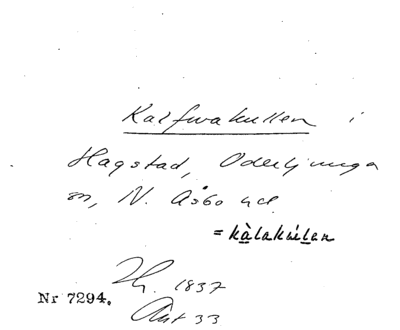 Kalfwakullen i
Hagstad, Oderljunga
sn, N. Åsbo hd.
= kàlakúlen
1837
Nr 7294. Akt 33